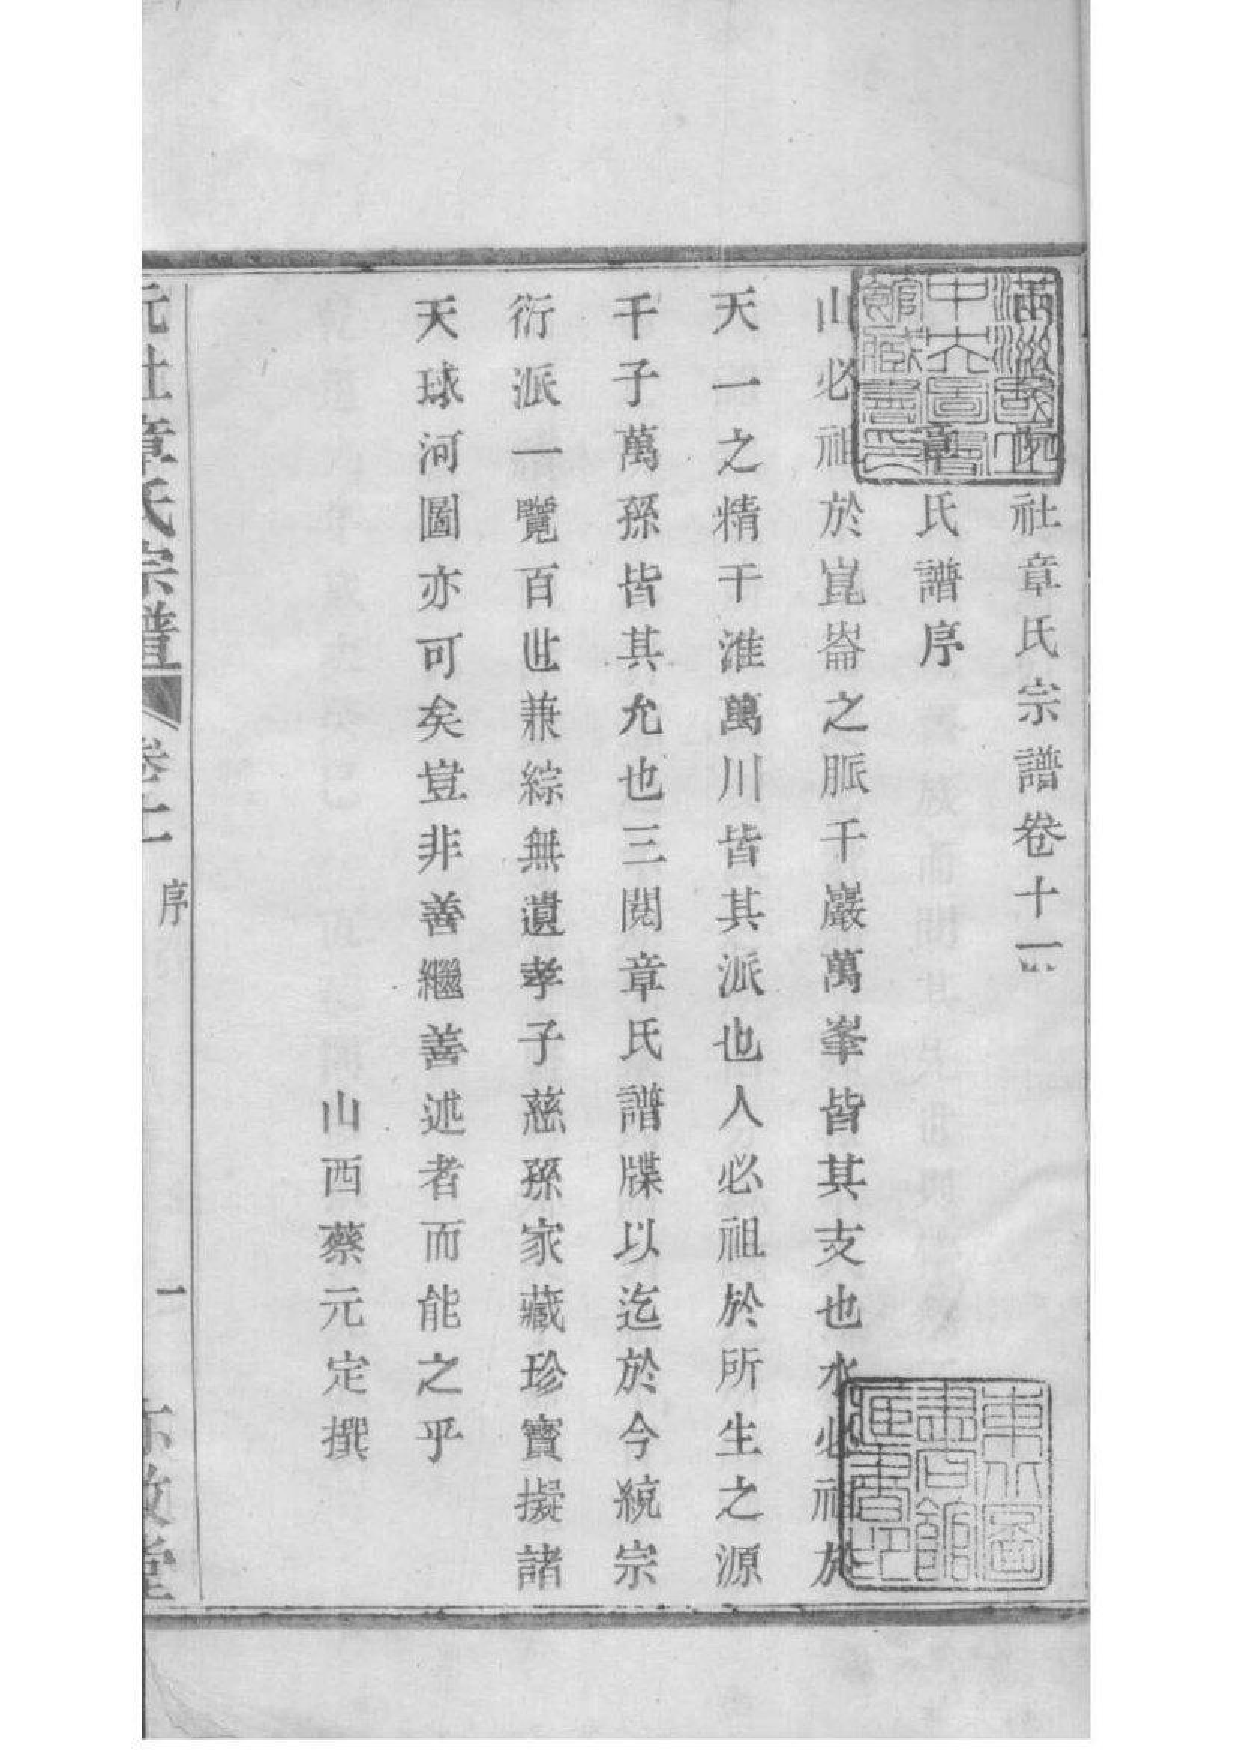 社章氏宗譜卷十一
章氏譜序
山必祖於崑崙之脈千巖萬峯皆其支也水必祖於
天一之精千淮萬川皆其派也人必祖於所生之源
千子萬孫皆其允也三閱章氏譜牒以迄於今統宗
衍派一覽百世兼綜無遺孝子慈孫家藏珍寶擬諸
天球河圖亦可矣豈非善繼善述者而能之乎
山西蔡元定撰
社章氏宗譜
卷十一
序
一
滿洲國立中央圖書館藏書印
東北圖書館藏書印